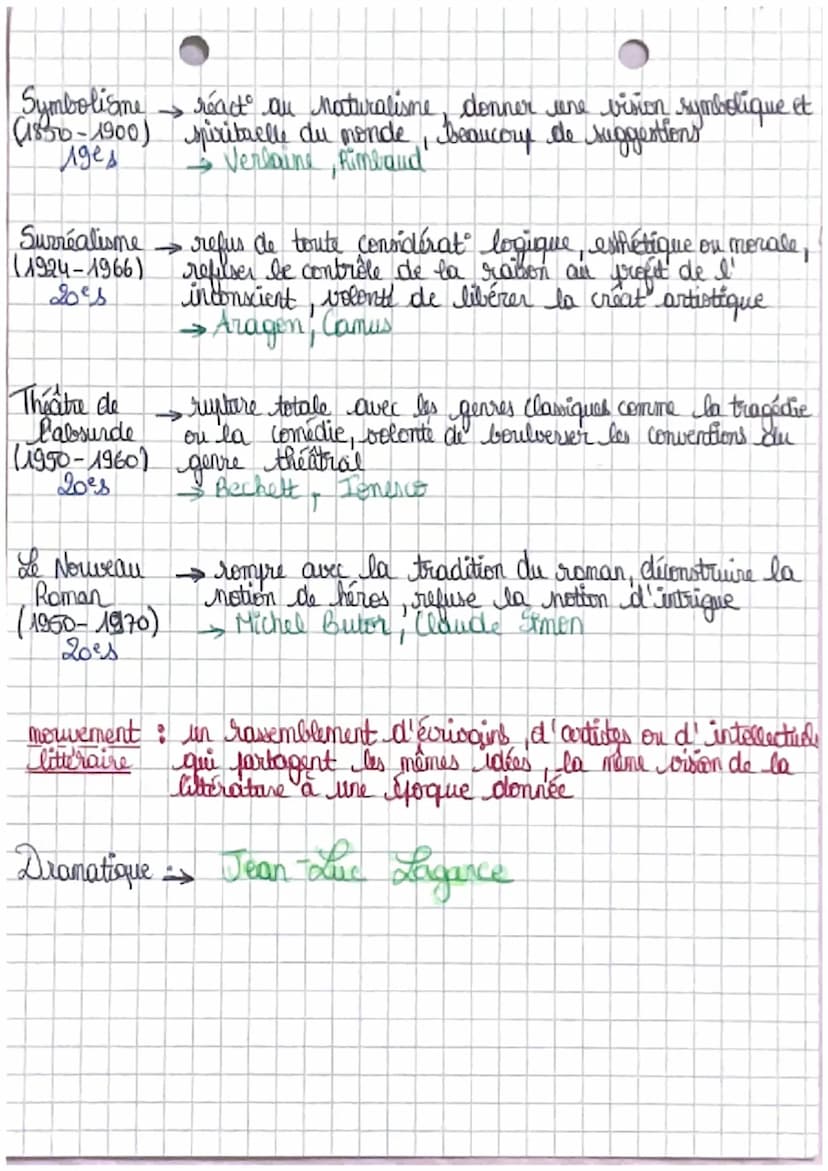 Symbolisme → réact° au naturalisme, donner une vision symbolique et
(1850-1900) spirituelle du monde, beaucoup de suggestions
19es → Verlaine, Rimbaud
Surréalisme → refus de toute considérat° logique, esthétique ou morale,
(1924-1966) refuser le contrôle de la raison au profit de l'
20es inconscient, volonté de libérer la créat° artistique
→ Aragon, Camus
Théâtre de → rupture totale avec les genres classiques comme la tragédie
l'absurde ou la comédie, volonté de boulverser les conventions du
(1950-1960) genre théâtral
20es → Bechett, Ionesco
Le Nouveau → rompre avec la tradition du roman, déconstruire la
Roman notion de héros, refuse la notion d'intrigue
(1950-1970) → Michel Butor, Claude Simon
20es
mouvement : un rassemblement d'écrivains, d'artistes ou d'intellectuels
littéraire qui partagent les mêmes idées, la même vision de la
littérature à une époque donnée
Dramatique :→ Jean-Luc Lagarce